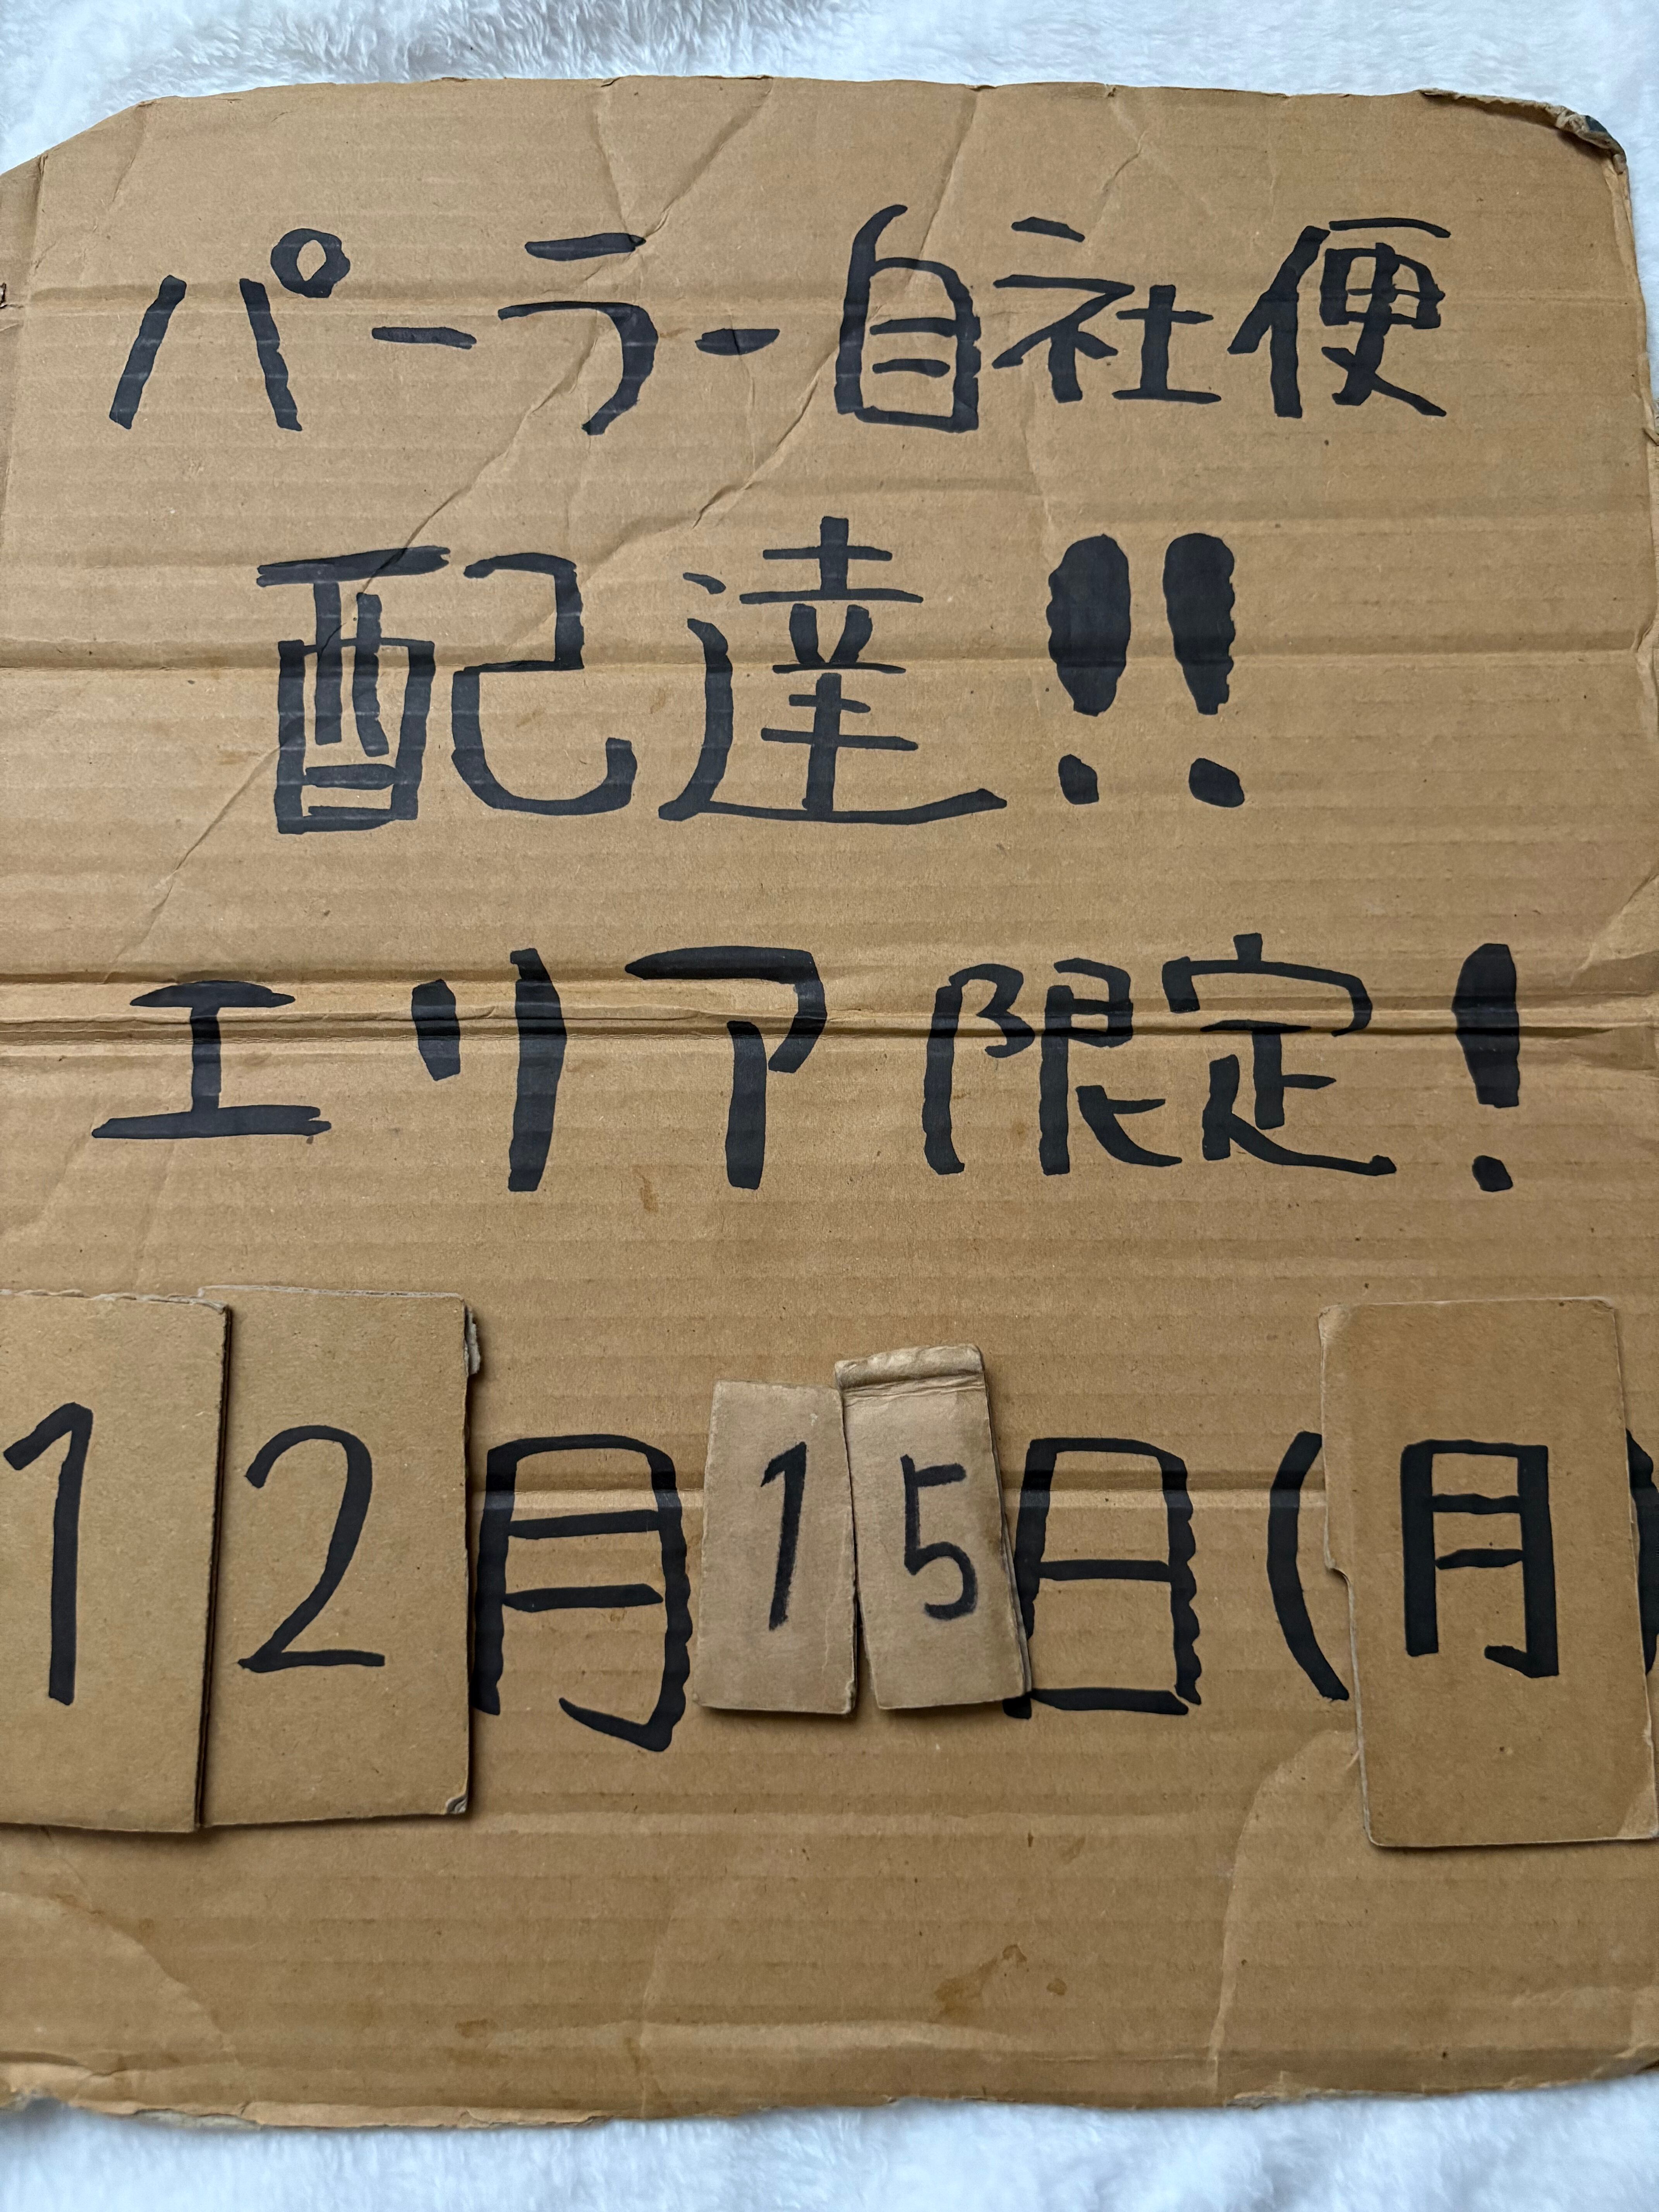 パーラー自社便
配達!!
エリア限定!
12月15日(月)